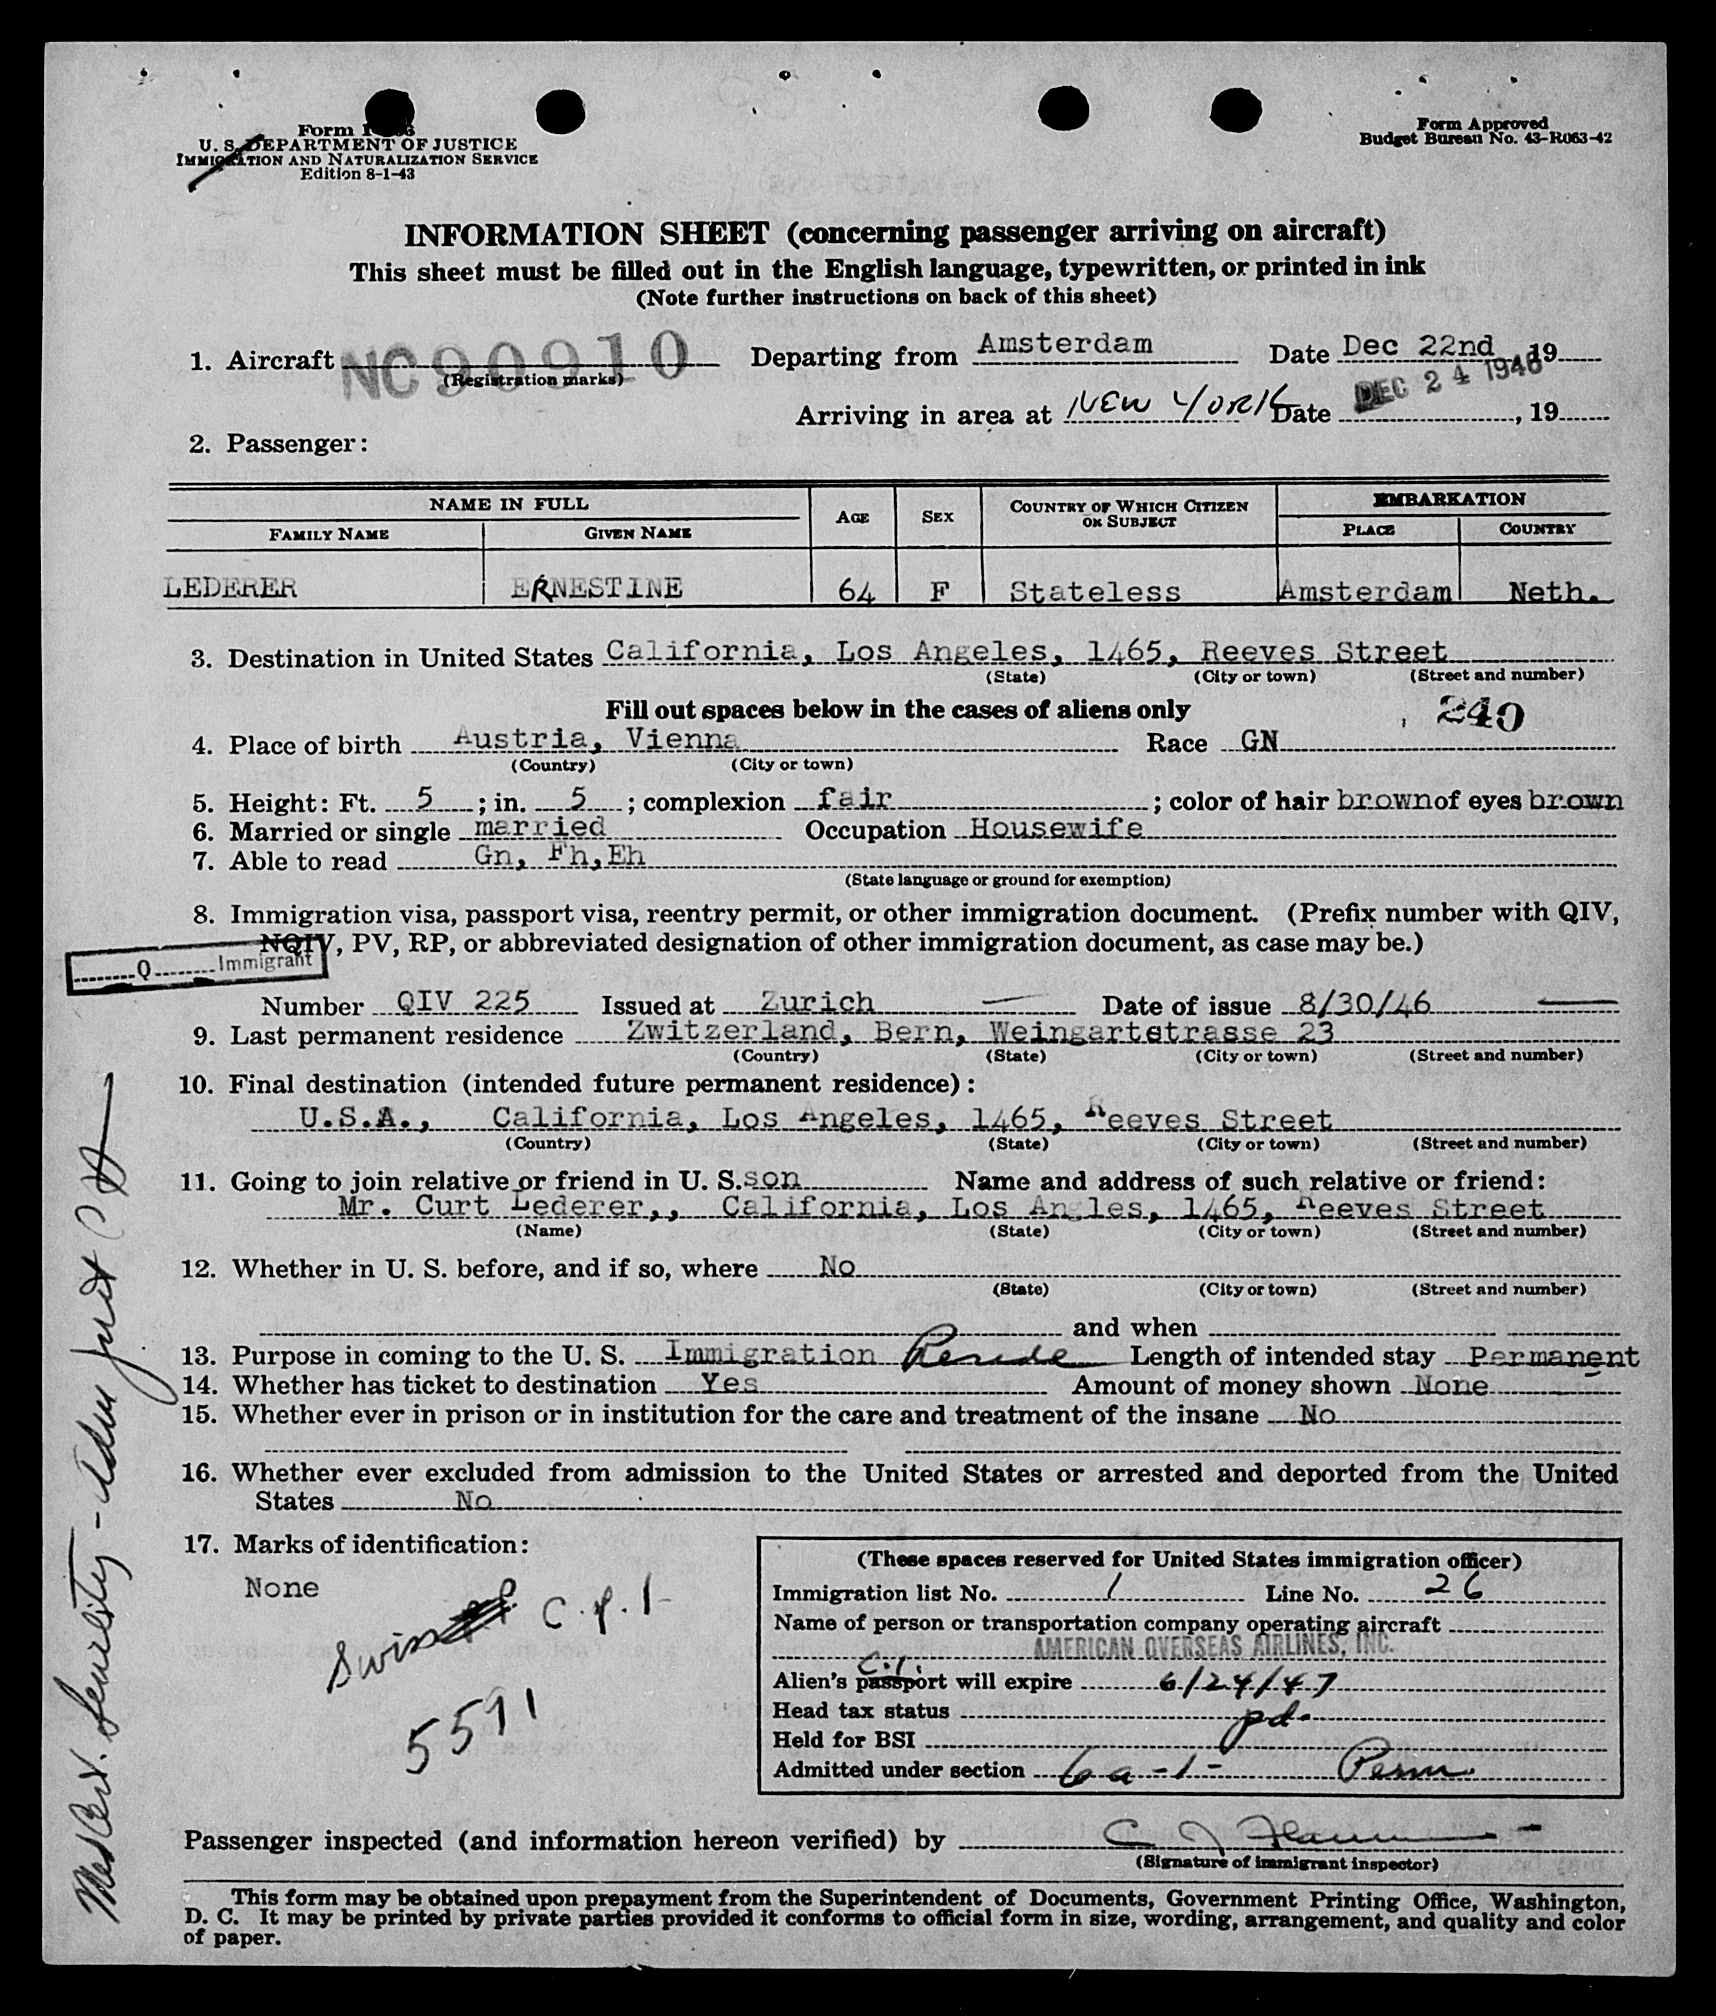 Form I-
U. S. DEPARTMENT OF JUSTICE
IMMIGRATION AND NATURALIZATION SERVICE
Edition 8-1-43
Form Approved
Budget Bureau No. 43-R063-42
INFORMATION SHEET (concerning passenger arriving on aircraft)
This sheet must be filled out in the English language, typewritten, or printed in ink
(Note further instructions on back of this sheet)
1. Aircraft NC90910 Departing from Amsterdam Date Dec 22nd, 19
(Registration marks)
Arriving in area at NEW YORK Date DEC 24 1946, 19
2. Passenger:
NAME IN FULL AGE SEX COUNTRY OF WHICH CITIZEN OR SUBJECT EMBARKATION
FAMILY NAME GIVEN NAME PLACE COUNTRY
LEDERER ERNESTINE 64 F Stateless Amsterdam Neth.
3. Destination in United States California, Los Angeles, 1465, Reeves Street
(State) (City or town) (Street and number)
Fill out spaces below in the cases of aliens only 240
4. Place of birth Austria, Vienna Race GN
(Country) (City or town)
5. Height: Ft. 5; in. 5; complexion fair; color of hair brown of eyes brown
6. Married or single married Occupation Housewife
7. Able to read Gn, Fh,Eh
(State language or ground for exemption)
8. Immigration visa, passport visa, reentry permit, or other immigration document. (Prefix number with QIV,
NQIV, PV, RP, or abbreviated designation of other immigration document, as case may be.)
Q Immigrant
Number QIV 225 Issued at Zurich Date of issue 8/30/46
9. Last permanent residence Zwitzerland, Bern, Weingartstrasse 23
(Country) (State) (City or town) (Street and number)
10. Final destination (intended future permanent residence):
U.S.A., California, Los Angeles, 1465, Reeves Street
(Country) (State) (City or town) (Street and number)
11. Going to join relative or friend in U. S. son Name and address of such relative or friend:
Mr. Curt Lederer,, California, Los Angles, 1465, Reeves Street
(Name) (State) (City or town) (Street and number)
12. Whether in U. S. before, and if so, where No
(State) (City or town) (Street and number)
and when
13. Purpose in coming to the U. S. Immigration Reside Length of intended stay Permanent
14. Whether has ticket to destination Yes Amount of money shown None
15. Whether ever in prison or in institution for the care and treatment of the insane No
16. Whether ever excluded from admission to the United States or arrested and deported from the United
States No
17. Marks of identification:
None
Swiss C.P.I.
5591
(These spaces reserved for United States immigration officer)
Immigration list No. 1 Line No. 26
Name of person or transportation company operating aircraft
AMERICAN OVERSEAS AIRLINES, INC.
C.I.
Alien's passport will expire 6/24/47
Head tax status pd.
Held for BSI
Admitted under section 6a-1- Perm.
Passenger inspected (and information hereon verified) by C J
(Signature of immigrant inspector)
This form may be obtained upon prepayment from the Superintendent of Documents, Government Printing Office, Washington,
D. C. It may be printed by private parties provided it conforms to official form in size, wording, arrangement, and quality and color
of paper.
Med Cert. Senility - Adm